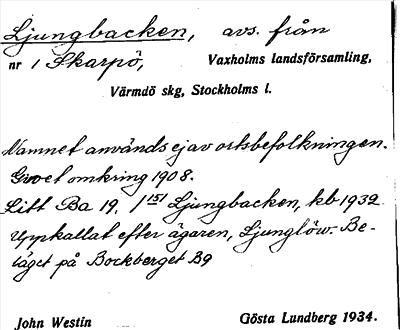 Ljungbacken, avs. från
nr 1 Skarpö, Vaxholms landsförsamling,
Värmdö skg, Stockholms l.
Namnet används ej av ortsbefolkningen.
Givet omkring 1908.
Litt Ba 19, 1¹⁵¹ Ljungbacken, kb 1932
Uppkallat efter ägaren, Ljunglöw. Be-
läget på Bockberget B9
John Westin Gösta Lundberg 1934.